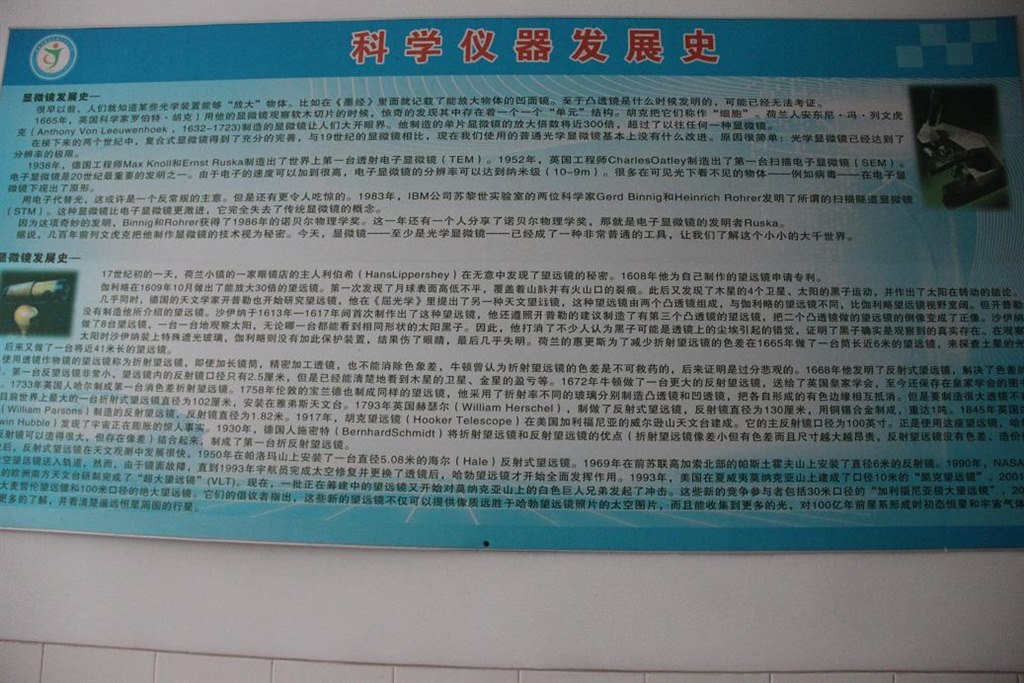 科学仪器发展史
显微镜发展史—
很早以前，人们就知道某些光学装置能够“放大”物体。比如在《墨经》里面就记载了能放大物体的凹面镜。至于凸透镜是什么时候发明的，可能已经无法考证。
1665年，英国科学家罗伯特·胡克）用他的显微镜观察软木切片的时候，惊奇的发现其中存在着一个一个“单元”结构。胡克把它们称作“细胞”。荷兰人安东尼·冯·列文虎
克（Anthony Von Leeuwenhoek，1632–1723)制造的显微镜让人们大开眼界。他制造的单片显微镜的放大倍数将近300倍，超过了以往任何一种显微镜。
在接下来的两个世纪中，复合式显微镜得到了充分的完善，与19世纪的显微镜相比，现在我们使用的普通光学显微镜基本上没有什么改进。原因很简单：光学显微镜已经达到了
分辨率的极限。
1938年，德国工程师Max Knoll和Ernst Ruska制造出了世界上第一台透射电子显微镜（TEM）。1952年，英国工程师CharlesOatley制造出了第一台扫描电子显微镜（SEM）。
电子显微镜是20世纪最重要的发明之一。由于电子的速度可以加到很高，电子显微镜的分辨率可以达到纳米级（10–9m）。很多在可见光下看不见的物体——例如病毒——在电子显
微镜下现出了原形。
用电子代替光，这或许是一个反常规的主意。但是还有更令人吃惊的。1983年，IBM公司苏黎世实验室的两位科学家Gerd Binnig和Heinrich Rohrer发明了所谓的扫描隧道显微镜
（STM）。这种显微镜比电子显微镜更激进，它完全失去了传统显微镜的概念。
因为这项奇妙的发明，Binnig和Rohrer获得了1986年的诺贝尔物理学奖。这一年还有一个人分享了诺贝尔物理学奖，那就是电子显微镜的发明者Ruska。
据说，几百年前列文虎克把他制作显微镜的技术视为秘密。今天，显微镜——至少是光学显微镜——已经成了一种非常普通的工具，让我们了解这个小小的大千世界。
显微镜发展史—
17世纪初的一天，荷兰小镇的一家眼镜店的主人利伯希（HansLippershey）在无意中发现了望远镜的秘密。1608年他为自己制作的望远镜申请专利。
伽利略在1609年10月做出了能放大30倍的望远镜。第一次发现了月球表面高低不平，覆盖着山脉并有火山口的裂痕。此后又发现了木星的4个卫星、太阳的黑子运动，并作出了太阳在转动的结论。
几乎同时，德国的天文学家开普勒也开始研究望远镜，他在《屈光学》里提出了另一种天文望远镜，这种望远镜由两个凸透镜组成，与伽利略的望远镜不同，比伽利略望远镜视野宽阔。但开普勒
没有制造他所介绍的望远镜。沙伊纳于1613年—1617年间首次制作出了这种望远镜，他还遵照开普勒的建议制造了有第三个凸透镜的望远镜，把二个凸透镜做的望远镜的倒像变成了正像。沙伊纳
做了8台望远镜，一台一台地观察太阳，无论哪一台都能看到相同形状的太阳黑子。因此，他打消了不少人认为黑子可能是透镜上的尘埃引起的错觉，证明了黑子确实是观察到的真实存在。在观察
太阳时沙伊纳装上特殊遮光玻璃，伽利略则没有加此保护装置，结果伤了眼睛，最后几乎失明。荷兰的惠更斯为了减少折射望远镜的色差在1665年做了一台筒长近6米的望远镜，来探查土星的光
后来又做了一台将近41米长的望远镜。
使用透镜作物镜的望远镜称为折射望远镜，即使加长镜筒，精密加工透镜，也不能消除色象差，牛顿曾认为折射望远镜的色差是不可救药的，后来证明是过分悲观的。1668年他发明了反射式望远镜，解决了色差的
。第一台反望远镜非常小，望远镜内的反射镜口径只有2.5厘米，但是已经能清楚地看到木星的卫星、金星的盈亏等。1672年牛顿做了一台更大的反射望远镜，送给了英国皇家学会，至今还保存在皇家学会的图书
。1733年英国人哈尔制成第一台消色差折射望远镜。1758年伦敦的宝兰德也制成同样的望远镜，他采用了折射率不同的玻璃分别制造凸透镜和凹透镜，把各自形成的有色边缘相互抵消。但是要制造很大透镜不
目前世界上最大的一台折射式望远镜直径为102厘米，安装在雅弟斯天文台。1793年英国赫瑟尔（William Herschel），制做了反射式望远镜，反射镜直径为130厘米，用铜锡合金制成，重达1吨。1845年英国
（William Parsons）制造的反射望远镜，反射镜直径为1.82米。1917年，胡克望远镜（Hooker Telescope）在美国加利福尼亚的威尔逊山天文台建成。它的主反射镜口径为100英寸。正是使用这座望远镜，哈
win Hubble）发现了宇宙正在膨胀的惊人事实。1930年，德国人施密特（BernhardSchmidt）将折射望远镜和反射望远镜的优点（折射望远镜像差小但有色差而且尺寸越大越昂贵，反射望远镜没有色差、造价
反射镜可以造得很大，但存在像差）结合起来，制成了第一台折反射望远镜。
后，反射式望远镜在天文观测中发展很快，1950年在帕洛玛山上安装了一台直径5.08米的海尔（Hale）反射式望远镜。1969年在前苏联高加索北部的帕斯土霍夫山上安装了直径6米的反射镜。1990年，NASA
太空望远镜送入轨道，然而，由于镜面故障，直到1993年宇航员完成太空修复并更换了透镜后，哈勃望远镜才开始全面发挥作用。1993年，美国在夏威夷莫纳克亚山上建成了口径10米的“凯克望远镜”。2001
的欧洲南方天文台研制完成了“超大望远镜”(VLT)。现在，一批正在筹建中的望远镜又开始对莫纳克亚山上的白色巨人兄弟发起了冲击。这些新的竞争参与者包括30米口径的“加利福尼亚极大望远镜”，20
大麦哲伦望远镜和100米口径的绝大望远镜。它们的倡议者指出，这些新的望远镜不仅可以提供像质远胜于哈勃望远镜照片的太空图片，而且能收集到更多的光，对100亿年前星系形成时初态恒星和宇宙气体
更多的了解，并看清楚遥远恒星周围的行星。